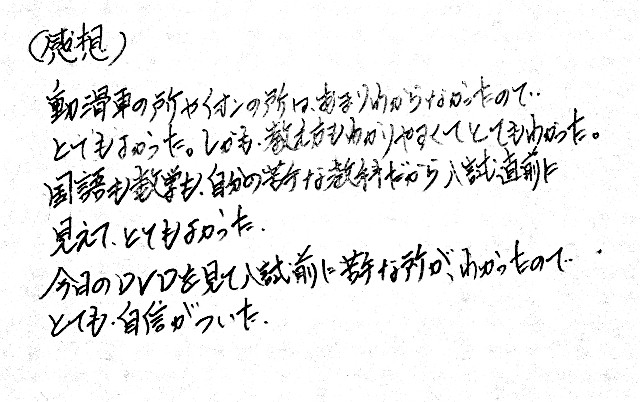 (感想)
動滑車の所やイオンの所は、あまりわからなかったので、
とてもよかった。しかも、教え方もわかりやすくてとてもわかった。
国語も数学も、自分の苦手な教科だから入試直前に
見えて、とてもよかった。
今日のDVDを見て入試前に苦手な所が、わかったので
とても、自信がついた。